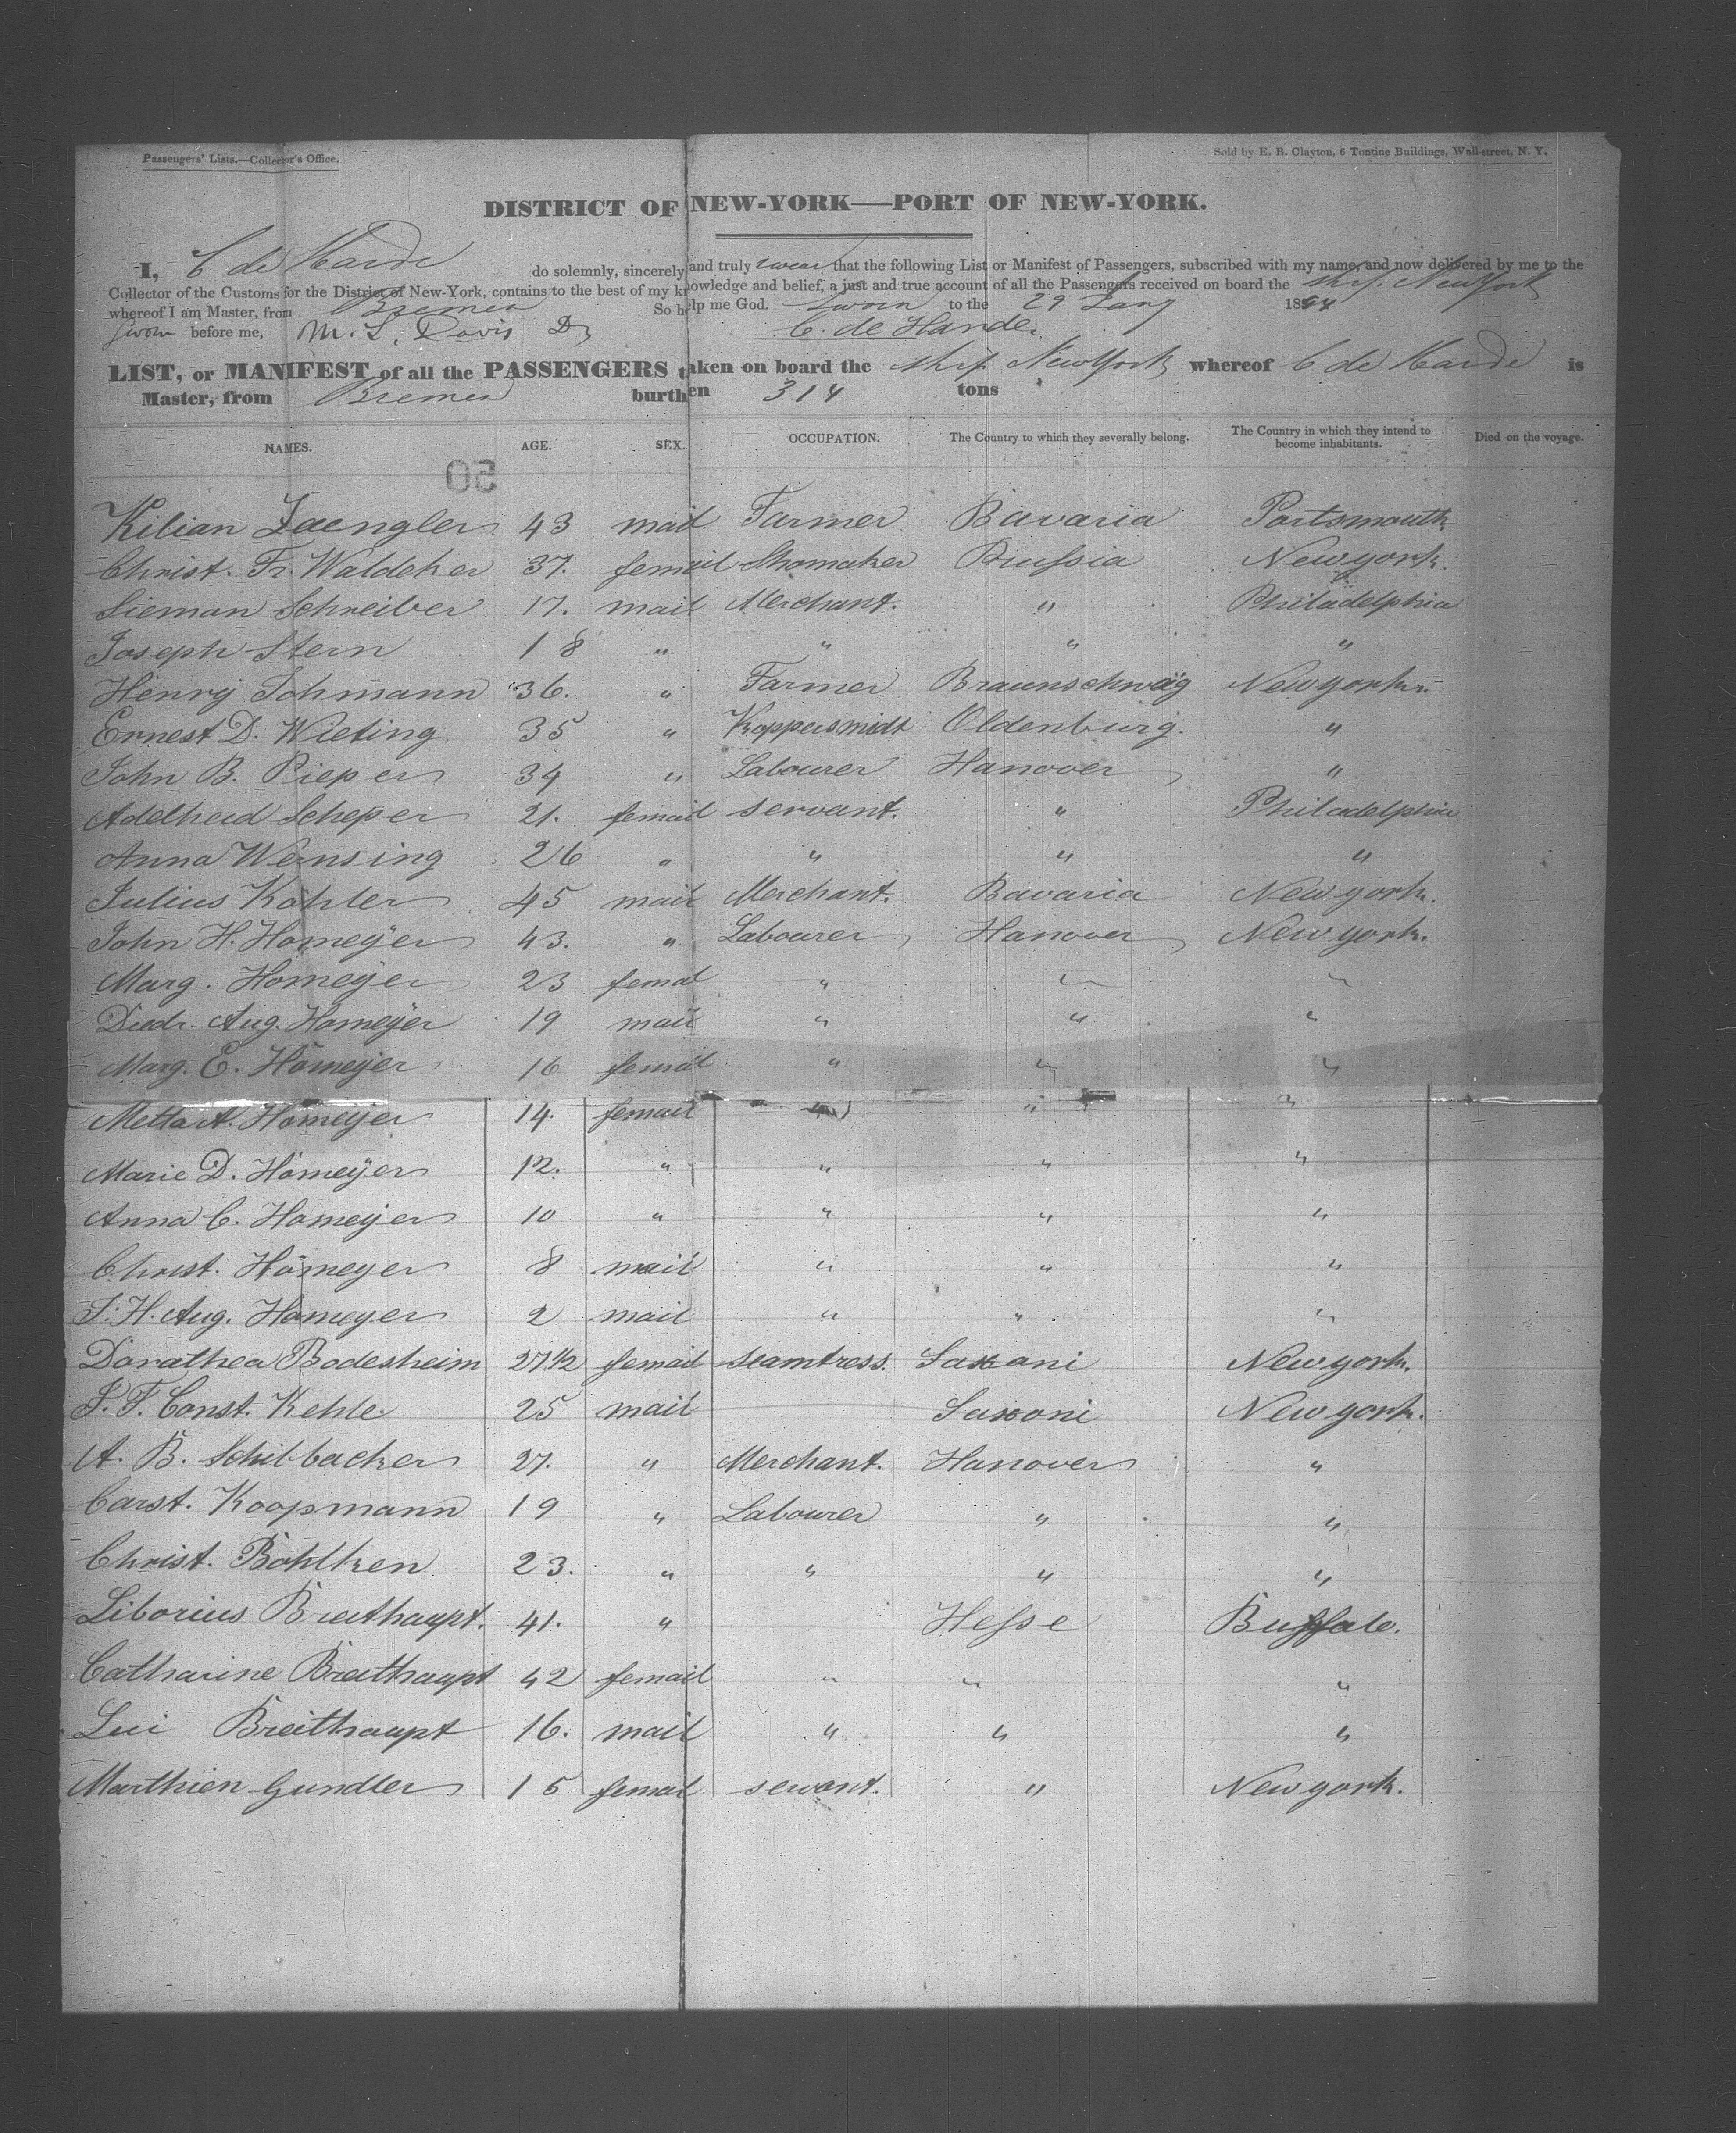 Passengers' Lists.—Collector's Office.
Sold by E. B. Clayton, 6 Tontine Buildings, Wall-street, N. Y.
DISTRICT OF NEW-YORK—PORT OF NEW-YORK.
I, C de Harde do solemnly, sincerely and truly swear that the following List or Manifest of Passengers, subscribed with my name, and now delivered by me to the
Collector of the Customs for the District of New-York, contains to the best of my knowledge and belief, a just and true account of all the Passengers received on board the ship New York
whereof I am Master, from Bremen So help me God. Sworn to the 29 Jany 1844
Sworn before me, M. L. Davis C. de Harde.
LIST, or MANIFEST of all the PASSENGERS taken on board the ship New York whereof C de Harde is
Master, from Bremen burthen 314 tons
NAMES. AGE. SEX. OCCUPATION. The Country to which they severally belong. The Country in which they intend to become inhabitants. Died on the voyage.
50
Kilian Zaengler 43 mail Farmer Bavaria Portsmouth
Christ. Fr. Waldeker 37. femail Shomaker Prussia New york.
Sieman Schreiber 17. mail Merchant. " Philadelphia
Joseph Stern 18 " " " "
Henry Tohmann 36. " Farmer Braunschweig New york.
Ernest D. Wieting 35 " Koppersmidt Oldenburg. "
John B. Pieper 34 " Labourer Hanover "
Adelheid Scheper 21. femail servant. " Philadelphia
Anna Wensing 26 " " " "
Julius Köhler 45 mail Merchant. Bavaria New york.
John H. Homeyer 43. " Labourer Hanover New york.
Marg. Homeyer 23 femal " " "
Diedr. Aug. Homeyer 19 mail " " "
Marg. E. Homeyer 16 femail " " "
Metta A. Homeyer 14. femail " " "
Marie D. Homeyer 12. " " " "
Anna C. Homeyer 10 " " " "
Christ. Homeyer 8 mail " " "
J. H. Aug. Homeyer 2 mail " " "
Dorathea Bodesheim 27 1/2 femail seamtress. Saxoni New york.
J. F. Const. Kehle 25 mail Saxoni New york.
A. B. Schilbacker 27. " Merchant. Hanover "
Carst. Koopmann 19 " Labourer " "
Christ. Bohlken 23. " " " "
Liborius Breithaupt. 41. " Hesse Buffalo.
Catharine Breithaupt 42 femail " " "
Lui Breithaupt 16. mail " " "
Marthien Gundler 15 femal servant. " New york.